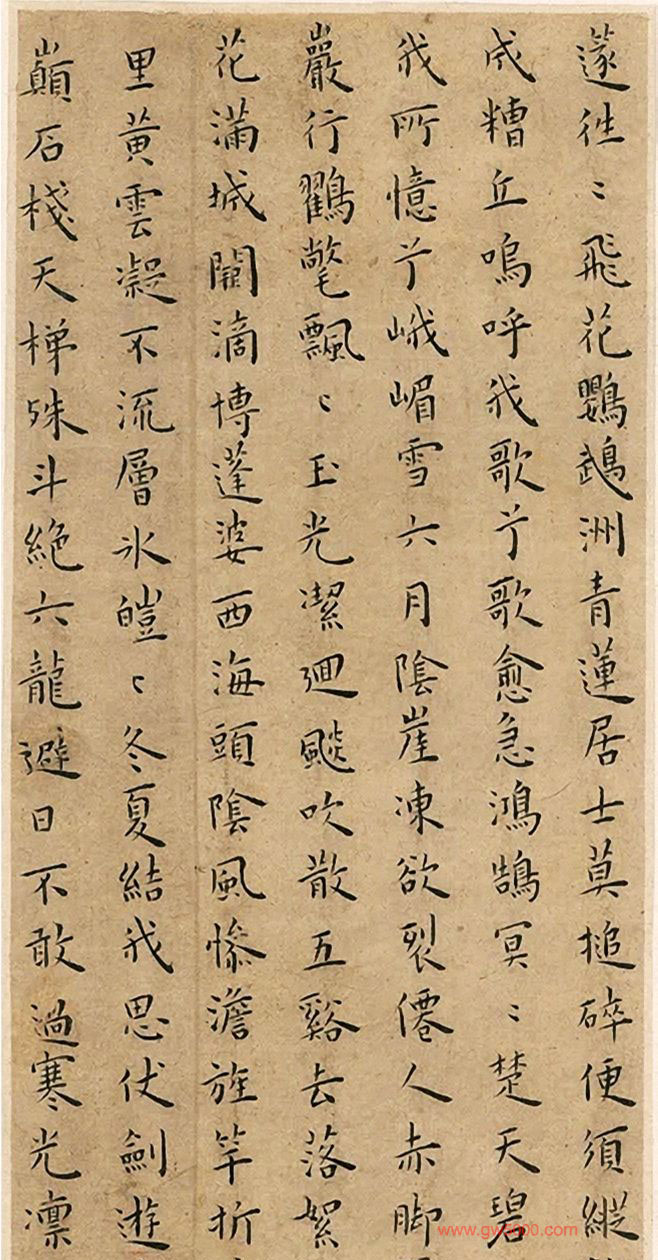 遂往〻飛花鸚鵡洲青蓮居士莫搥碎便須縱
成糟丘嗚呼我歌兮歌愈急鴻鵠冥〻楚天碧
我所憶兮峨嵋雪六月陰崖凍欲裂僊人赤脚
巖行鸛氅飄〻玉光潔迴飈吹散五谿去落絮
花滿城闕滴博蓬婆西海頭陰風慘澹旌竿折
里黃雲凝不流層氷皚〻冬夏結我思伏劍遊
巔石棧天梯殊斗絶六龍避日不敢過寒光凛